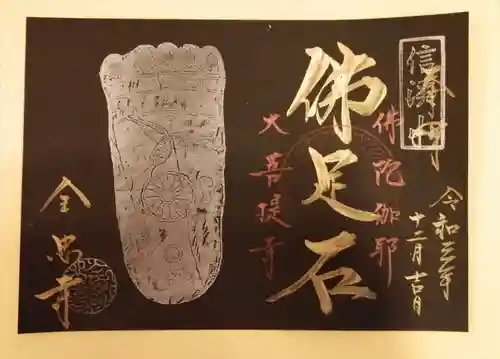 奉拝
信濃中野
令和三年
十一月吉日
佛足石
佛陀伽耶
大菩提寺